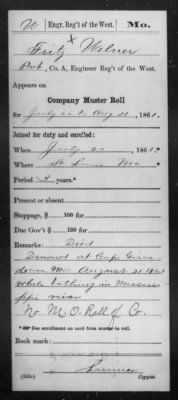 W Engr. Reg't of the West. Mo.
Fritz Welner
Pvt., Co. A, Engineer Reg't of the West.
Appears on
Company Muster Roll
for July 20 to Aug 31, 1861.
Joined for duty and enrolled:
When July 20, 1861.
Where St Louis Mo
Period 3 years.*
Present or absent
Stoppage, $ 100 for
Due Gov't $ 100 for
Remarks: Died
Drowned at Camp
Mo August 21 1861
while bathing in Mississ
ippi river
N. M. O. Roll of Co.
*See enrollment on card from muster-in roll.
Book mark:
(358c) Copyist.